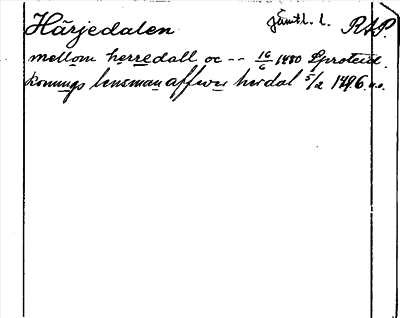 Härjedalen Jämtl. l. RAP.
mellom herredall oc -- 16/6 1480
konungs lensman affwer herdal 5/2 1496